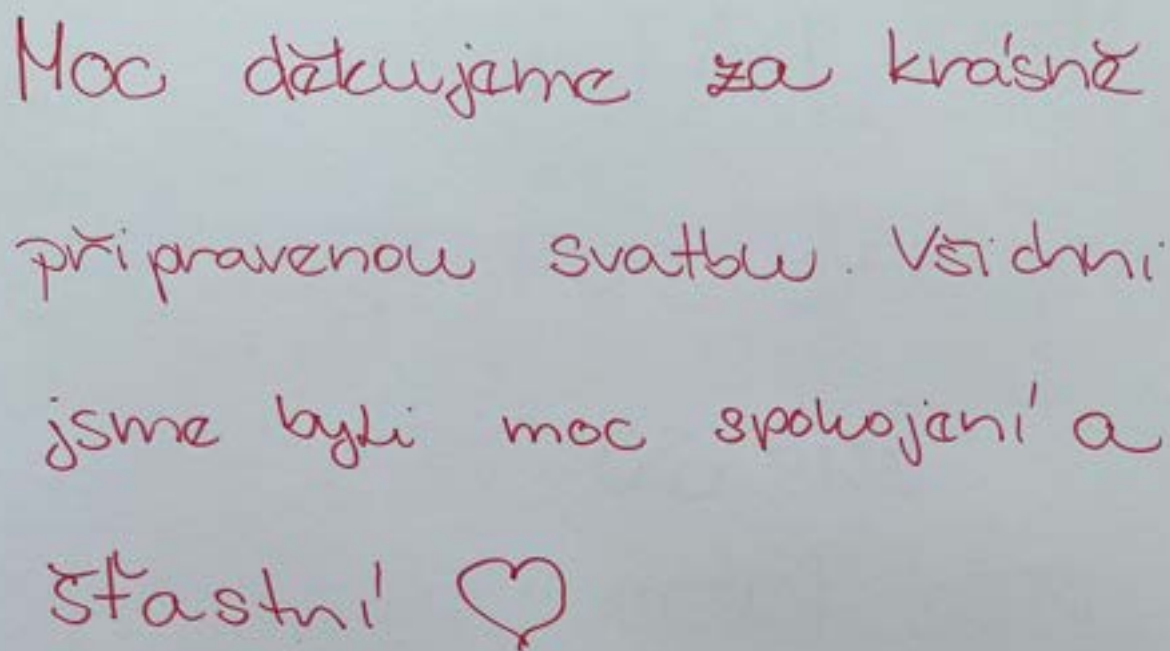 Moc děkujeme za krásně
připravenou svatbu. Všichni
jsme byli moc spokojení a
šťastní ♡